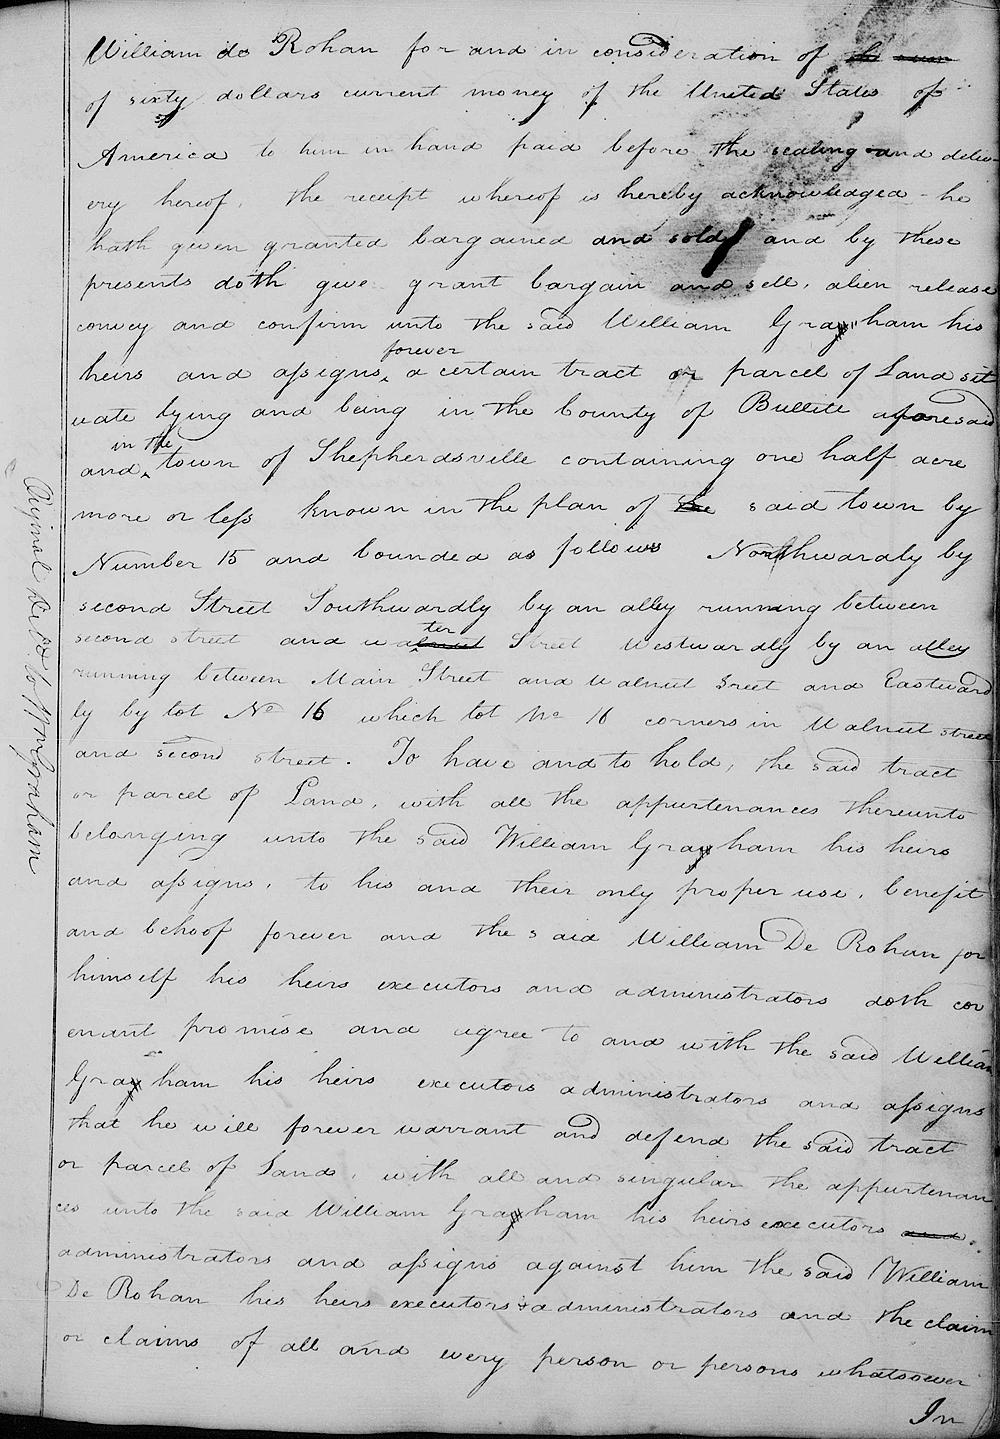 William do Rohan for and in consideration of the sum
of sixty dollars current money of the United States of
America to him in hand paid before the sealing and deliv-
ery hereof, the receipt whereof is hereby acknowledged - he
hath given granted bargained and sold and by these
presents doth give grant bargain and sell, alien release
convey and confirm unto the said William Grayham his
heirs and assigns forever a certain tract or parcel of Land sit
uate lying and being in the County of Bullitt aforesaid
and in the town of Shepherdsville containing one half acre
more or less known in the plan of the said town by
Number 15 and bounded as follows Northwardly by
second Street Southwardly by an alley running between
second street and water Street Westwardly by an alley
running between Main Street and Walnut Sreet and Eastward
ly by lot No 16 which lot No 16 corners in Walnut street
and second street. To have and to hold, the said tract
or parcel of Land, with all the appurtenances thereunto
belonging unto the said William Grayham his heirs
and assigns, to his and their only proper use, benefit
and behoof forever and the said William De Rohan for
himself his heirs executors and administrators doth cov
enant promise and agree to and with the said William
Grayham his heirs executors administrators and assigns
that he will forever warrant and defend the said tract
or parcel of Land, with all and singular the appurtenan
ces unto the said William Grayham his heirs executors and
administrators and assigns against him the said William
De Rohan his heirs executors & administrators and the claim
or claims of all and every person or persons whatsoever
In
Original Deld. to Wm Graham